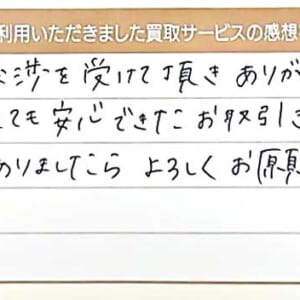 利用いただきました買取サービスの感想
交渉を受けて頂き ありが
ても安心できたお取引き
ありましたら よろしく お願